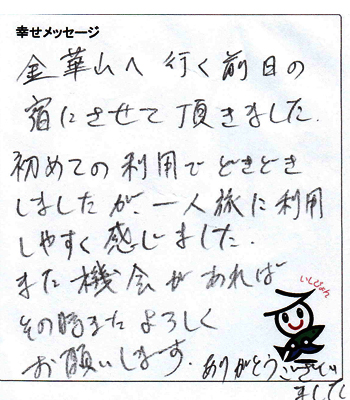 幸せメッセージ
金華山へ行く前日の
宿にさせて頂きました.
初めての利用でどきどき
しましたが、一人旅に利用
しやすく感じました.
また機会があれば
その時またよろしく
お願いします.
ありがとうございました
いしぴょん